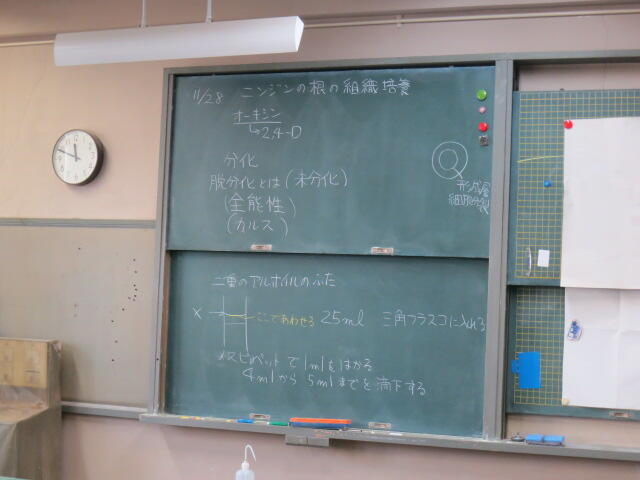 11/28 ニンジンの根の組織培養
オーキシン
↳2,4-D
分化
脱分化とは(未分化)
(全能性)
(カルス)
形成層
細胞分裂
二重のアルホイルのふた
x ここであわせる 25ml 三角フラスコに入れる
メスピペットで1mlをはかる
4mlから5mlまでを滴下する